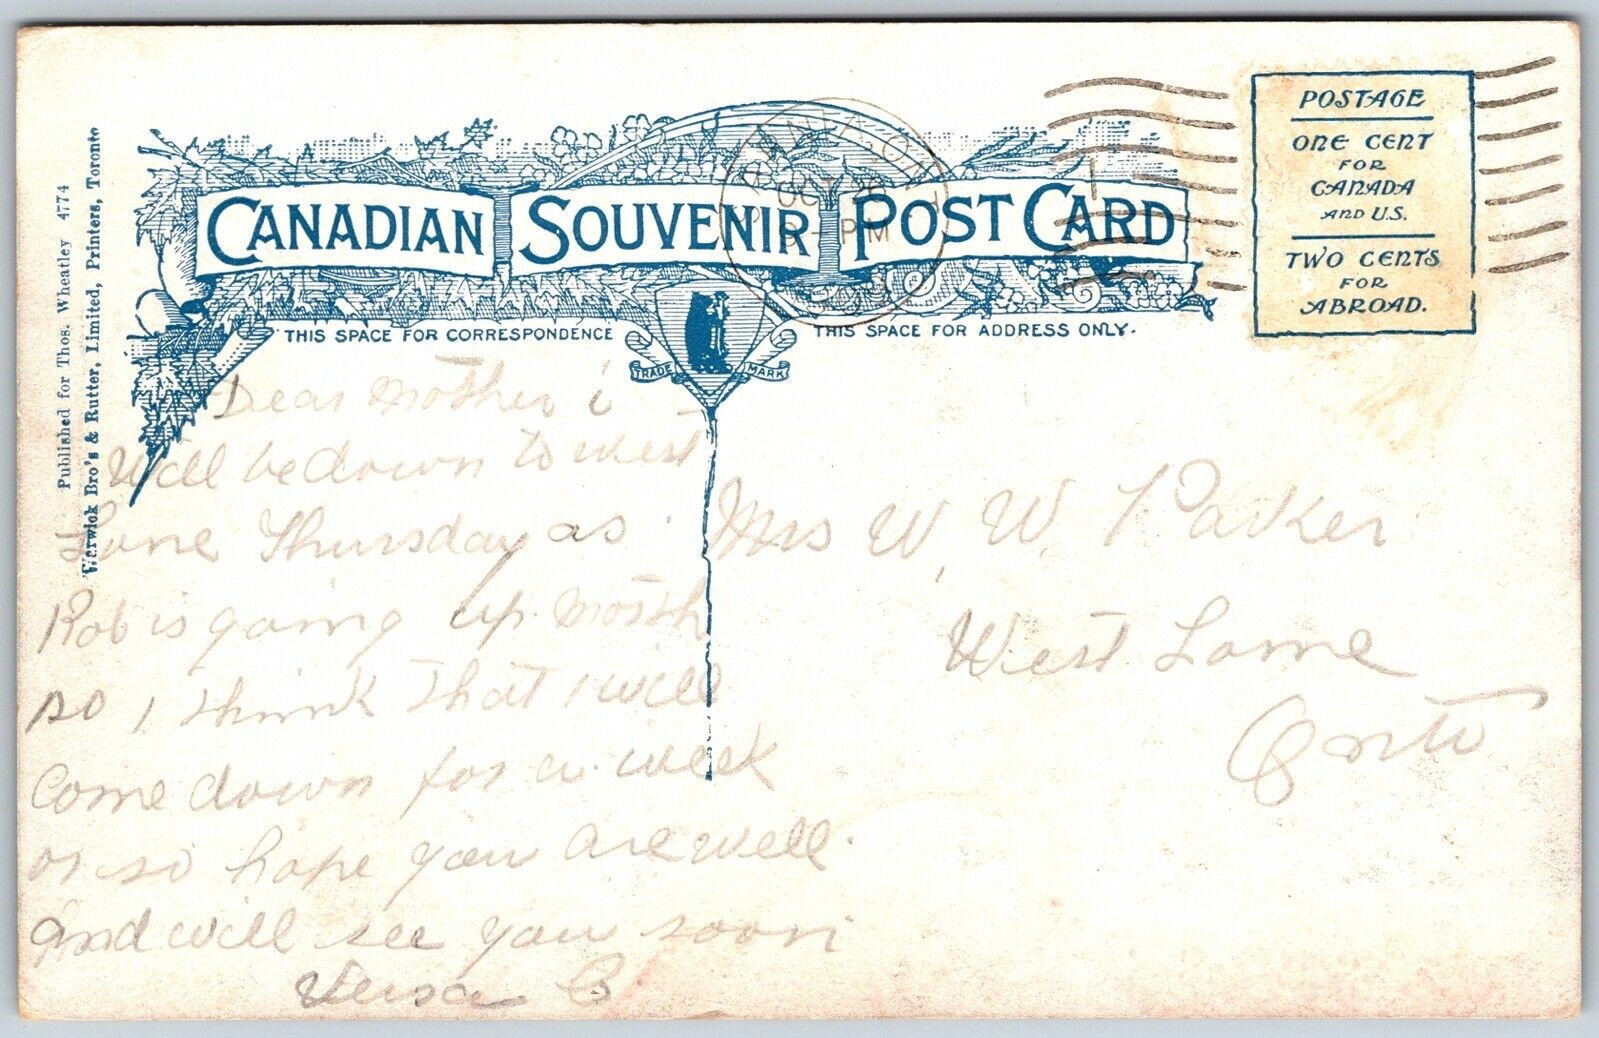 CANADIAN SOUVENIR POST CARD
THIS SPACE FOR CORRESPONDENCE
THIS SPACE FOR ADDRESS ONLY.
TRADE MARK
POSTAGE
ONE CENT
FOR
CANADA
AND U.S.
TWO CENTS
FOR
ABROAD.
OCT
PM
Published for Thos. Wheatley 4774
Warwick Bro's & Rutter, Limited, Printers, Toronto
Dear Mother i
Will be down to West
Lorne Thursday as
Rob is going up North
so I think that I will
come down for a week
or so hope you are well
And will see you soon
Mrs W. W. Parker
West Lorne
Onto